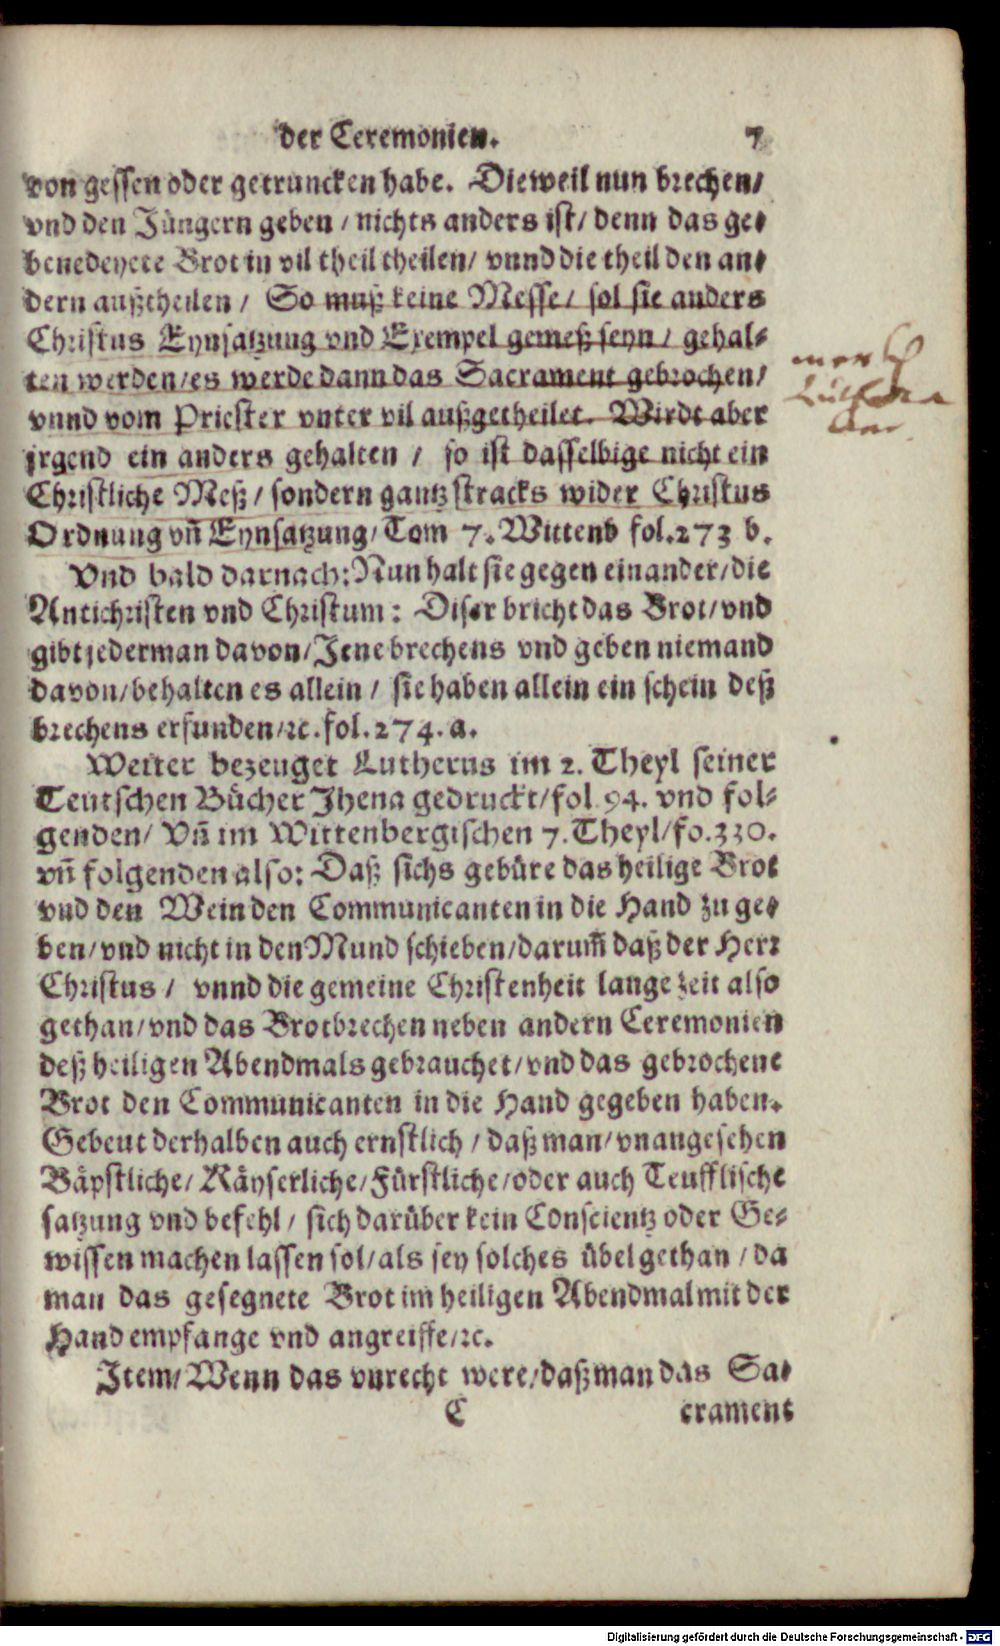 der Ceremonien. 7
von gessen oder getruncken habe. Dieweil nun brechen/
vnd den Jüngern geben / nichts anders ist/ denn das ge-
benedeyete Brot in vil theil theilen/ vnnd die theil den an-
dern außtheilen / So muß keine Messe/ sol sie anders
Christus Eynsatzung vnd Exempel gemeß seyn / gehal-
ten werden/es werde dann das Sacrament gebrochen/
vnnd vom Priester vnter vil außgetheilet. Wirdt aber
jrgend ein anders gehalten / so ist dasselbige nicht ein
Christliche Meß/ sondern gantz stracks wider Christus
Ordnung vñ Eynsatzung/Tom 7. Wittenb fol.273 b.
Vnd bald darnach: Nun halt sie gegen einander/die
Antichristen vnd Christum: Diser bricht das Brot/vnd
gibt jederman davon/Jene brechens vnd geben niemand
davon/behalten es allein / sie haben allein ein schein deß
brechens erfunden/ꝛc.fol.274.a.
Weiter bezeuget Lutherus im 2. Theyl seiner
Teutschen Bücher Jhena gedruckt/fol 94. vnd fol-
genden/ Vñ im Wittenbergischen 7.Theyl/fo.330.
vñ folgenden also: Daß sichs gebüre das heilige Brot
vnd den Wein den Communicanten in die Hand zu ge-
ben/vnd nicht in den Mund schieben/darum̃ daß der Herr
Christus / vnnd die gemeine Christenheit lange zeit also
gethan/vnd das Brotbrechen neben andern Ceremonien
deß heiligen Abendmals gebrauchet/vnd das gebrochene
Brot den Communicanten in die Hand gegeben haben.
Gebeut derhalben auch ernstlich / daß man/vnangesehen
Bäpstliche/ Käyserliche/Fürstliche/oder auch Teufflische
satzung vnd befehl/ sich darüber kein Conscientz oder Ge-
wissen machen lassen sol/als sey solches übel gethan / da
man das gesegnete Brot im heiligen Abendmal mit der
Hand empfange vnd angreiffe/ꝛc.
Item/Wenn das vnrecht were/daß man das Sa-
C crament
merck
Digitalisierung gefördert durch die Deutsche Forschungsgemeinschaft - DFG